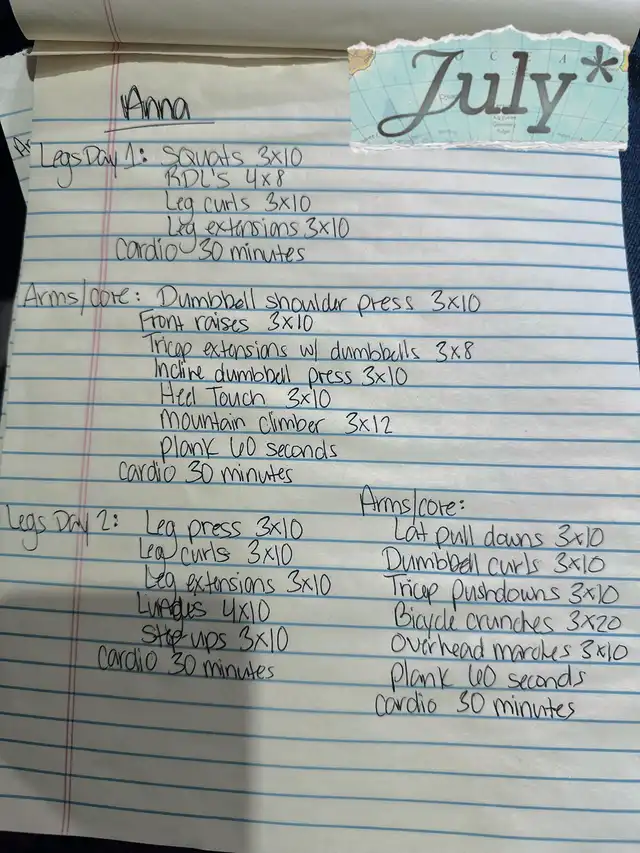 July*
Anna
Legs Day 1: Squats 3x10
RDL's 4x8
Leg curls 3x10
Leg extensions 3x10
Cardio 30 minutes
Arms/core: Dumbbell shoulder press 3x10
Front raises 3x10
Tricep extensions w/ dumbbells 3x8
Incline dumbbell press 3x10
Heel Touch 3x10
Mountain climber 3x12
Plank 60 seconds
Cardio 30 minutes
Legs Day 2: Leg press 3x10
Leg curls 3x10
Leg extensions 3x10
Lunges 4x10
Step-ups 3x10
Cardio 30 minutes
Arms/core:
Lat pull downs 3x10
Dumbbell curls 3x10
Tricep pushdowns 3x10
Bicycle crunches 3x20
Overhead marches 3x10
Plank 60 seconds
Cardio 30 minutes